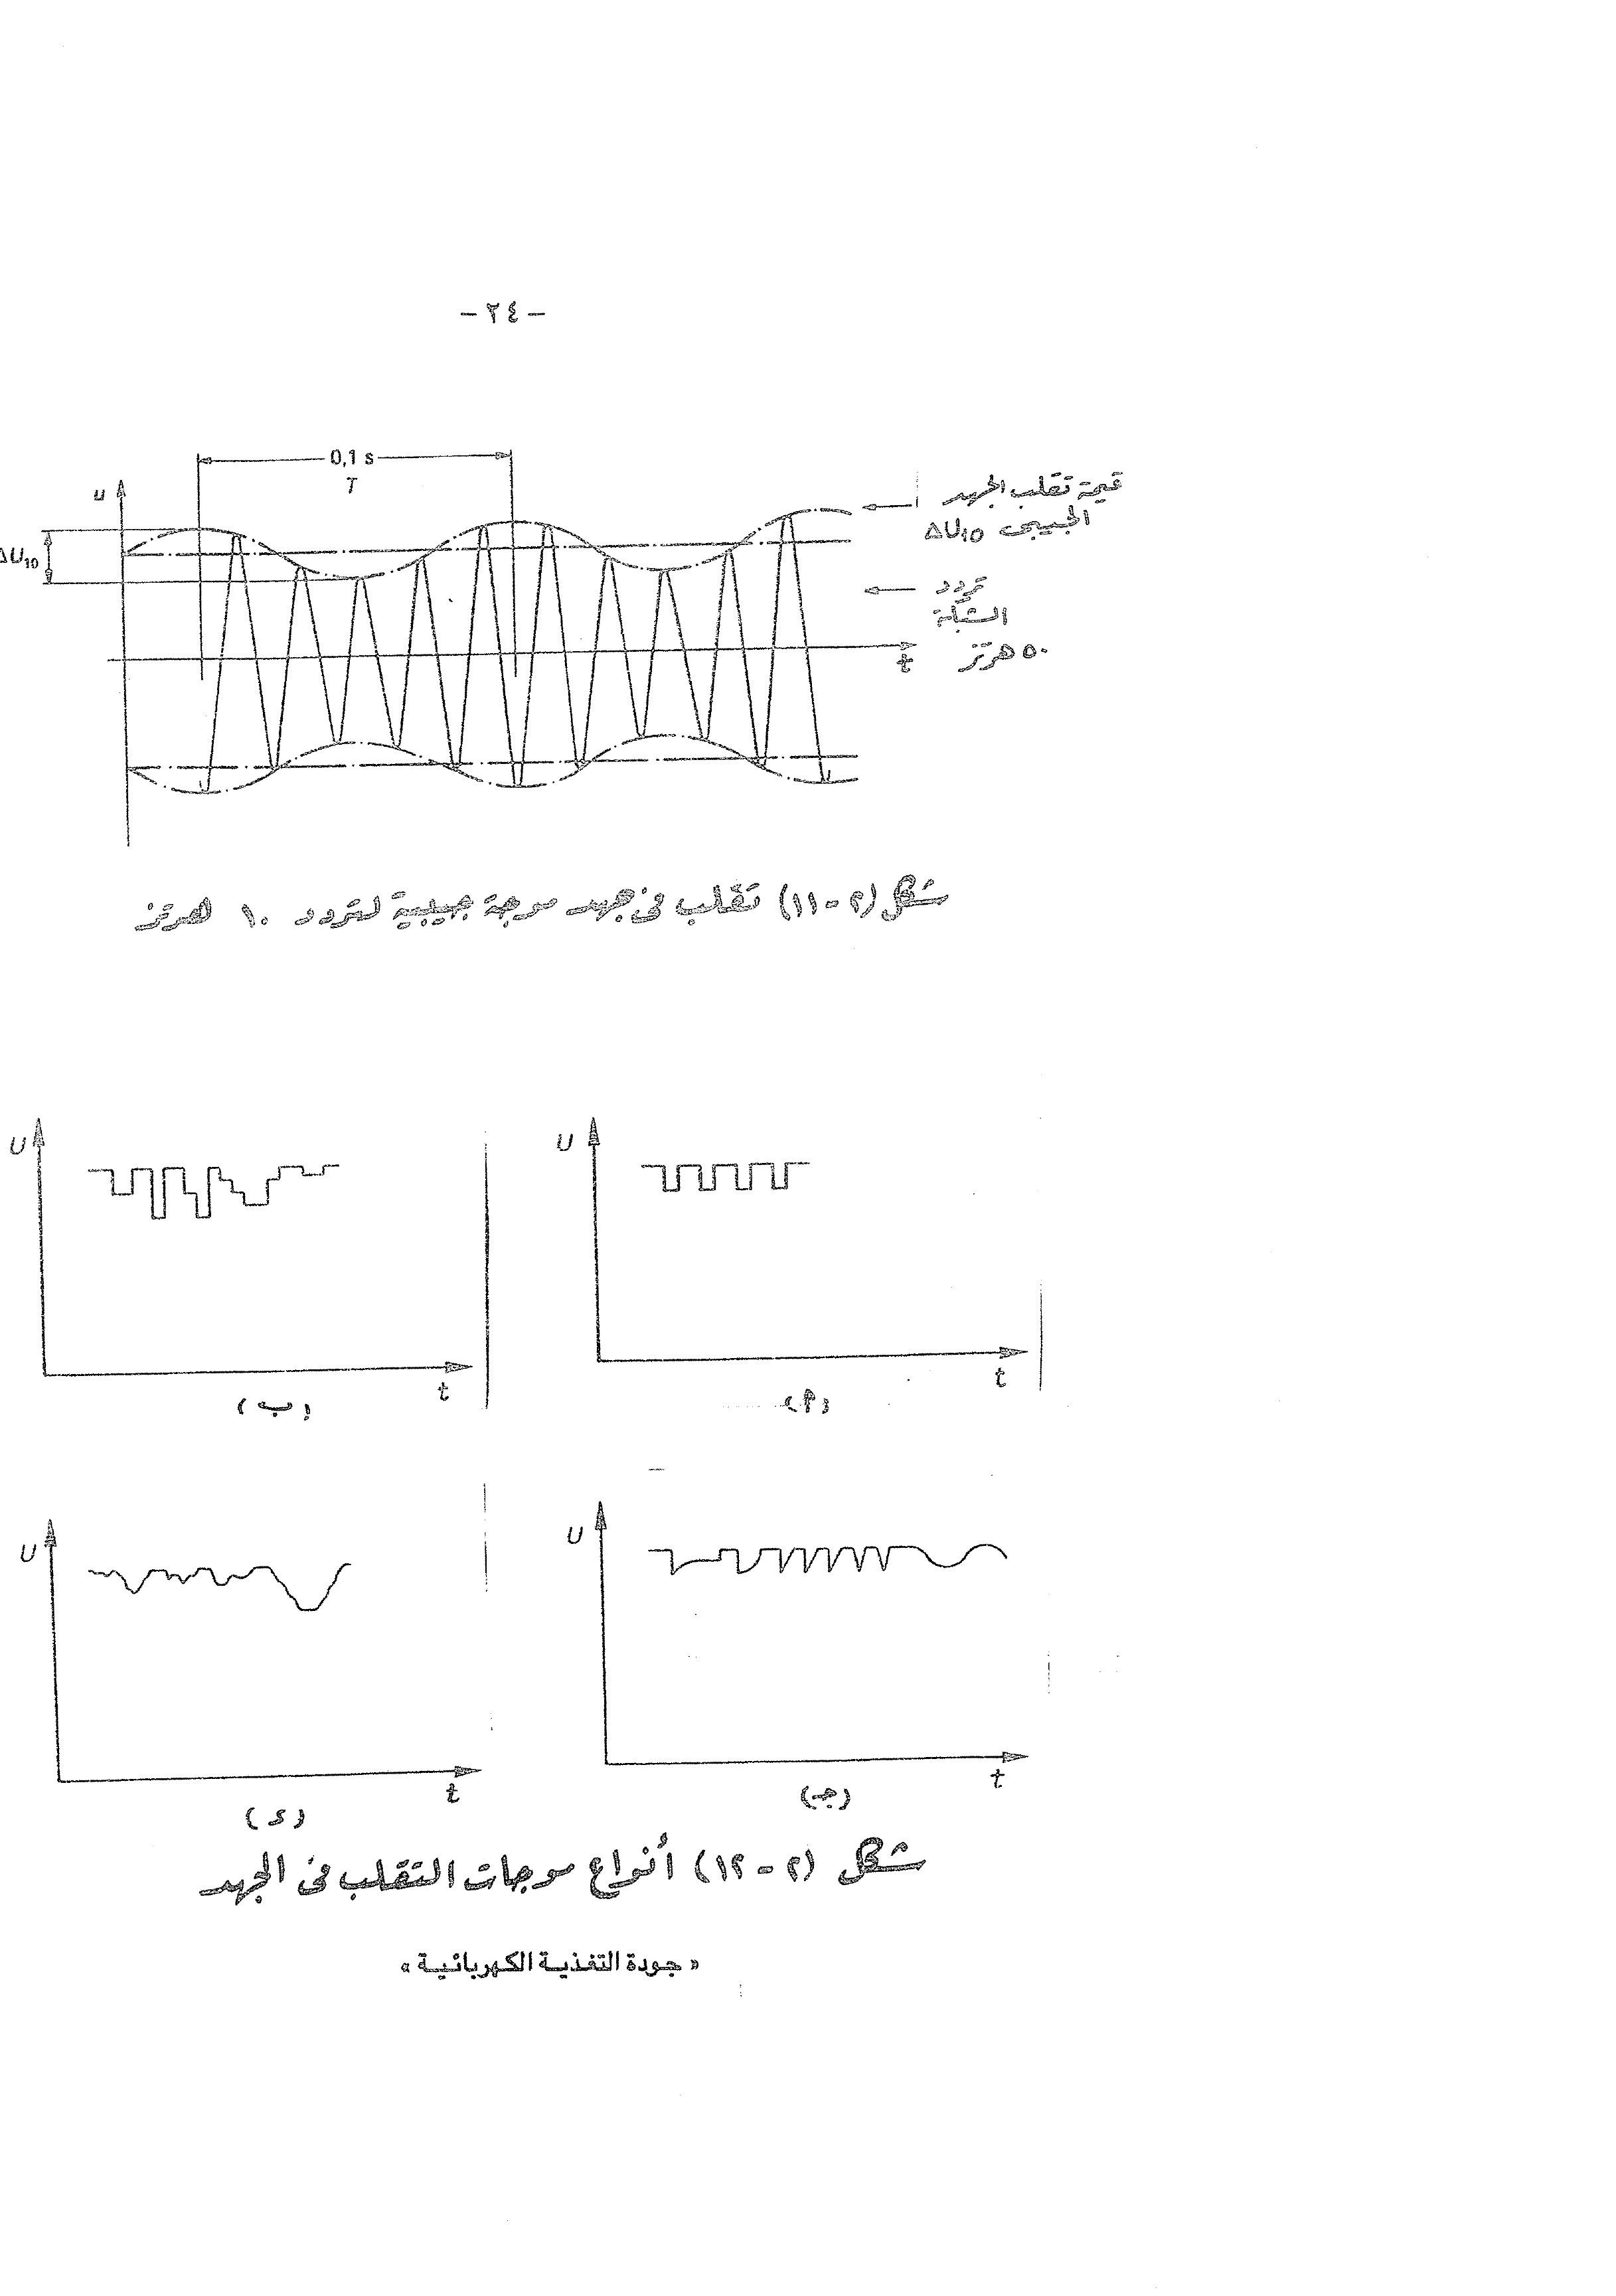 - ٢٤ -
0,1 s
T
u
ΔU10
قيمة تقلب الجهد
الجيبى ΔU10
تردد
الشبكة
٥٠ هرتز
t
شكل (٢-١١) تقلب فى جهد موجة جيبية لتردد ١٠ هرتز
U
t
(أ)
U
t
(ب)
U
t
(جـ)
U
t
(د)
شكل (٢-١٢) أنواع موجات التقلب فى الجهد
« جودة التغذية الكهربائية »